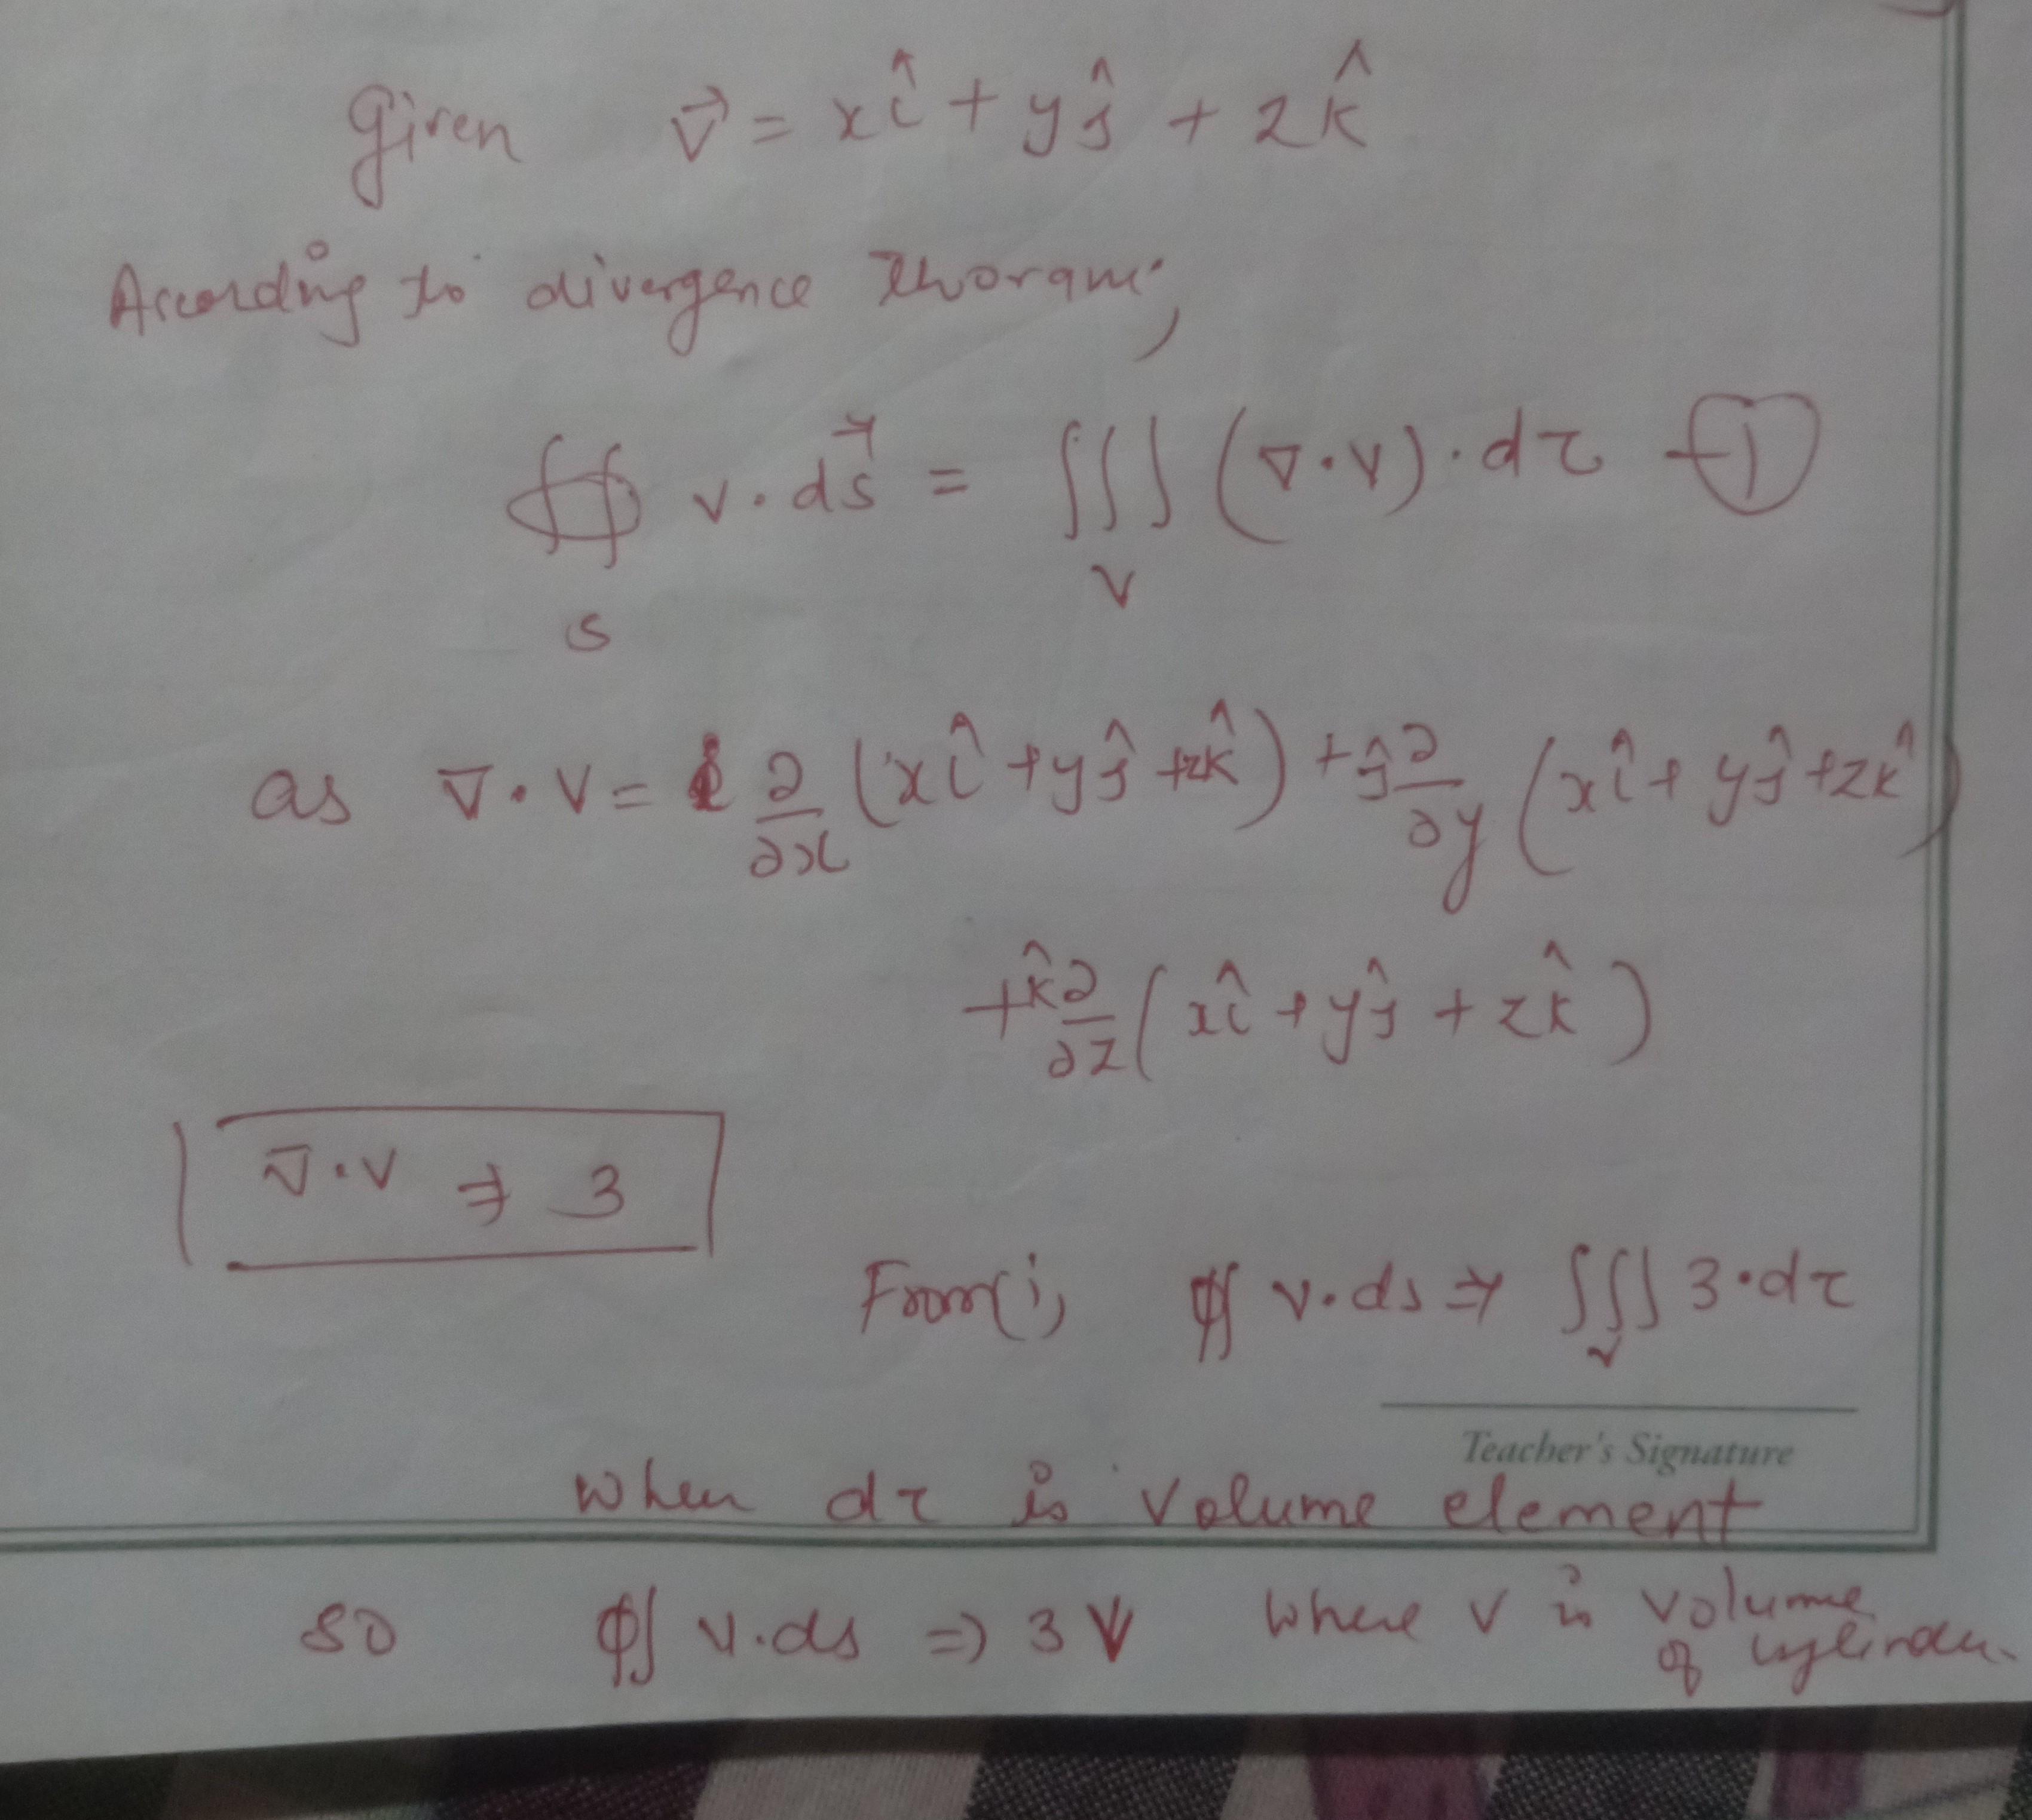 Given v⃗ = xî + yĵ + zk̂
According to divergence theoram,
∯ v·ds⃗ = ∭ (∇·v)·dτ —①
S V
as ∇·V = î ∂/∂x (xî + yĵ + zk̂) + ĵ ∂/∂y (xî + yĵ + zk̂)
+ k̂ ∂/∂z (xî + yĵ + zk̂)
∇·V ⇒ 3
From (i, ∯ v·ds ⇒ ∭ 3·dτ
V
Teacher's Signature
When dτ is volume element
so ∯ v·ds ⇒ 3V where v is volume
of cylinder.